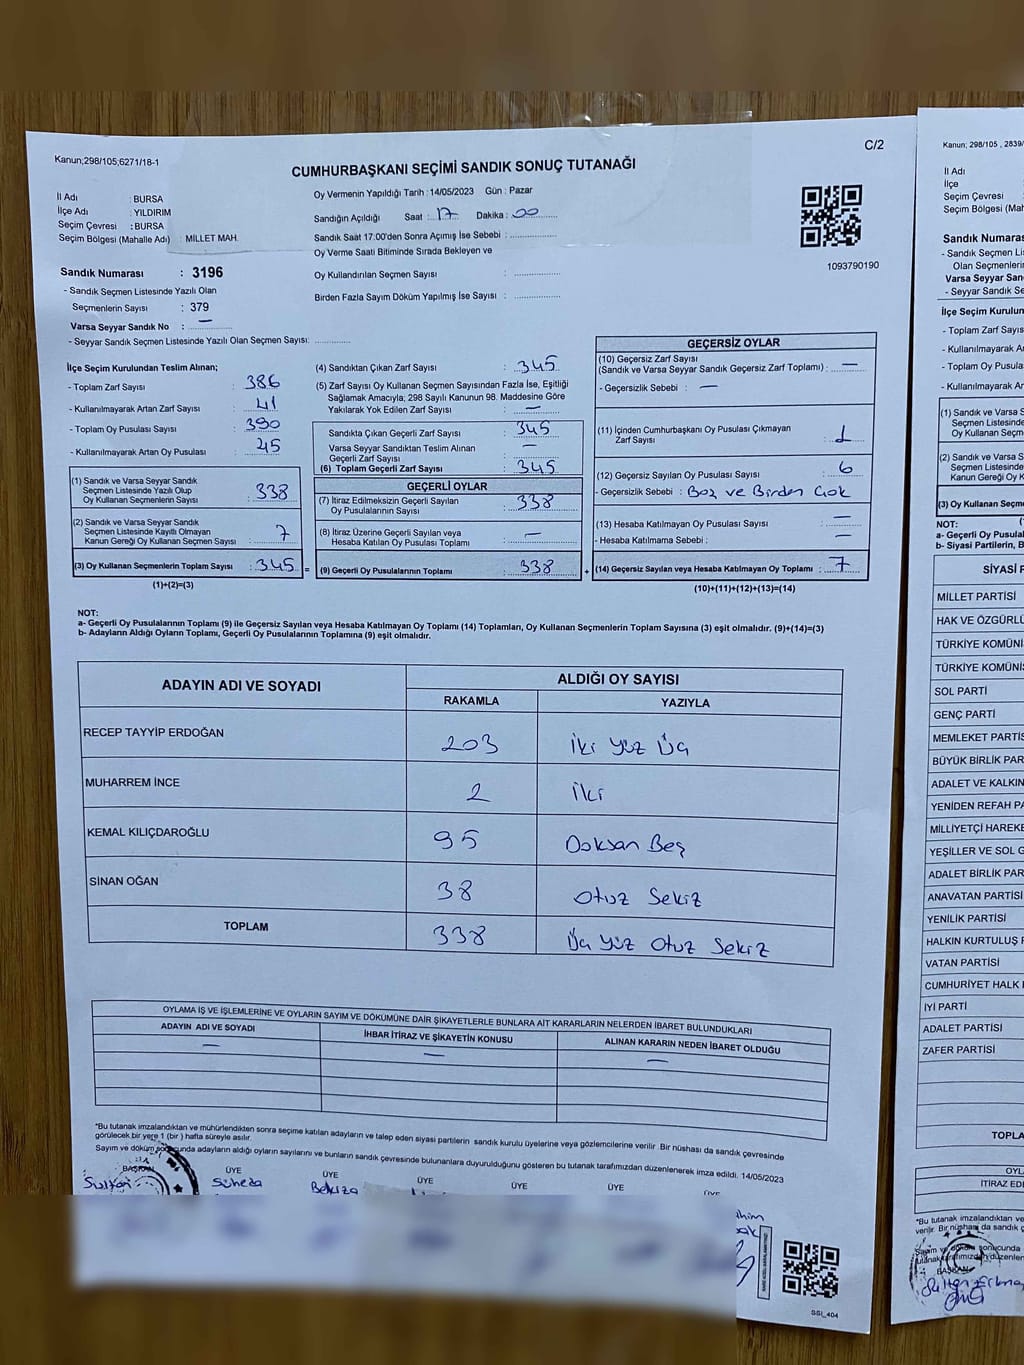 Kanun;298/105;6271/18-1
C/2
CUMHURBAŞKANI SEÇİMİ SANDIK SONUÇ TUTANAĞI
İl Adı : BURSA
İlçe Adı : YILDIRIM
Seçim Çevresi : BURSA
Seçim Bölgesi (Mahalle Adı) : MİLLET MAH.
Oy Vermenin Yapıldığı Tarih : 14/05/2023 Gün : Pazar
Sandığın Açıldığı Saat : 17 Dakika : 00
Sandık Saat 17:00'den Sonra Açımış İse Sebebi :
Oy Verme Saati Bitiminde Sırada Bekleyen ve
Oy Kullandırılan Seçmen Sayısı :
Birden Fazla Sayım Döküm Yapılmış İse Sayısı :
1093790190
Sandık Numarası : 3196
- Sandık Seçmen Listesinde Yazılı Olan
Seçmenlerin Sayısı : 379
Varsa Seyyar Sandık No : —
- Seyyar Sandık Seçmen Listesinde Yazılı Olan Seçmen Sayısı:
İlçe Seçim Kurulundan Teslim Alınan;
- Toplam Zarf Sayısı : 386
- Kullanılmayarak Artan Zarf Sayısı : 41
- Toplam Oy Pusulası Sayısı : 390
- Kullanılmayarak Artan Oy Pusulası : 45
(1) Sandık ve Varsa Seyyar Sandık
Seçmen Listesinde Yazılı Olup
Oy Kullanan Seçmenlerin Sayısı : 338
(2) Sandık ve Varsa Seyyar Sandık
Seçmen Listesinde Kayıtlı Olmayan
Kanun Gereği Oy Kullanan Seçmen Sayısı : 7
(3) Oy Kullanan Seçmenlerin Toplam Sayısı : 345
(1)+(2)=(3)
(4) Sandıktan Çıkan Zarf Sayısı : 345
(5) Zarf Sayısı Oy Kullanan Seçmen Sayısından Fazla İse, Eşitliği
Sağlamak Amacıyla; 298 Sayılı Kanunun 98. Maddesine Göre
Yakılarak Yok Edilen Zarf Sayısı : —
Sandıkta Çıkan Geçerli Zarf Sayısı : 345
Varsa Seyyar Sandıktan Teslim Alınan
Geçerli Zarf Sayısı : —
(6) Toplam Geçerli Zarf Sayısı : 345
GEÇERLİ OYLAR
(7) İtiraz Edilmeksizin Geçerli Sayılan
Oy Pusulalarının Sayısı : 338
(8) İtiraz Üzerine Geçerli Sayılan veya
Hesaba Katılan Oy Pusulası Toplamı : —
= (9) Geçerli Oy Pusulalarının Toplamı : 338 +
GEÇERSİZ OYLAR
(10) Geçersiz Zarf Sayısı
(Sandık ve Varsa Seyyar Sandık Geçersiz Zarf Toplamı) : —
- Geçersizlik Sebebi : —
(11) İçinden Cumhurbaşkanı Oy Pusulası Çıkmayan
Zarf Sayısı : 1
(12) Geçersiz Sayılan Oy Pusulası Sayısı : 6
- Geçersizlik Sebebi : Boş ve Birden Çok
(13) Hesaba Katılmayan Oy Pusulası Sayısı : —
- Hesaba Katılmama Sebebi : —
(14) Geçersiz Sayılan veya Hesaba Katılmayan Oy Toplamı : 7
(10)+(11)+(12)+(13)=(14)
NOT:
a- Geçerli Oy Pusulalarının Toplamı (9) ile Geçersiz Sayılan veya Hesaba Katılmayan Oy Toplamı (14) Toplamları, Oy Kullanan Seçmenlerin Toplam Sayısına (3) eşit olmalıdır. (9)+(14)=(3)
b- Adayların Aldığı Oyların Toplamı, Geçerli Oy Pusulalarının Toplamına (9) eşit olmalıdır.
ADAYIN ADI VE SOYADI
ALDIĞI OY SAYISI
RAKAMLA YAZIYLA
RECEP TAYYİP ERDOĞAN 203 İki Yüz Üç
MUHARREM İNCE 2 İki
KEMAL KILIÇDAROĞLU 95 Doksan Beş
SİNAN OĞAN 38 Otuz Sekiz
TOPLAM 338 Üç Yüz Otuz Sekiz
OYLAMA İŞ VE İŞLEMLERİNE VE OYLARIN SAYIM VE DÖKÜMÜNE DAİR ŞİKAYETLERLE BUNLARA AİT KARARLARIN NELERDEN İBARET BULUNDUKLARI
ADAYIN ADI VE SOYADI İHBAR İTİRAZ VE ŞİKAYETİN KONUSU ALINAN KARARIN NEDEN İBARET OLDUĞU
— — —
*Bu tutanak imzalandıktan ve mühürlendikten sonra seçime katılan adayların ve talep eden siyasi partilerin sandık kurulu üyelerine veya gözlemcilerine verilir .Bir nüshası da sandık çevresinde
görülecek bir yere 1 (bir ) hafta süreyle asılır.
Sayım ve döküm sonucunda adayların aldığı oyların sayılarını ve bunların sandık çevresinde bulunanlara duyurulduğunu gösteren bu tutanak tarafımızdan düzenlenerek imza edildi. 14/05/2023
BAŞKAN ÜYE ÜYE ÜYE ÜYE ÜYE ÜYE
Sultan Süheda
SSI_404
Kanun; 298/105 , 2839/
İl Adı
İlçe
Seçim Çevresi
Seçim Bölgesi (Mah
Sandık Numaras
- Sandık Seçmen Lis
Olan Seçmenleri
Varsa Seyyar San
- Seyyar Sandık Se
İlçe Seçim Kurulun
- Toplam Zarf Sayıs
- Kullanılmayarak A
- Toplam Oy Pusula
- Kullanılmayarak A
(1) Sandık ve Varsa
Seçmen Listesind
Oy Kullanan Seçm
(2) Sandık ve Varsa
Seçmen Listesind
Kanun Gereği Oy
(3) Oy Kullanan Seçme
NOT:
a- Geçerli Oy Pusula
b- Siyasi Partilerin, B
SİYASİ P
MİLLET PARTİSİ
HAK VE ÖZGÜRLÜ
TÜRKİYE KOMÜNİ
TÜRKİYE KOMÜNİS
SOL PARTİ
GENÇ PARTİ
MEMLEKET PARTİS
BÜYÜK BİRLİK PAR
ADALET VE KALKIN
YENİDEN REFAH PA
MİLLİYETÇİ HAREKE
YEŞİLLER VE SOL G
ADALET BİRLİK PAR
ANAVATAN PARTİSİ
YENİLİK PARTİSİ
HALKIN KURTULUŞ P
VATAN PARTİSİ
CUMHURİYET HALK
İYİ PARTİ
ADALET PARTİSİ
ZAFER PARTİSİ
TOPLA
OYL
İTİRAZ EDE
*Bu tutanak imzalandıktan ve
verilir. Bir nüshası da sandık ç
Sayım ve döküm sonucunda
tutanak tarafımızdan düzenlen
BAŞKAN